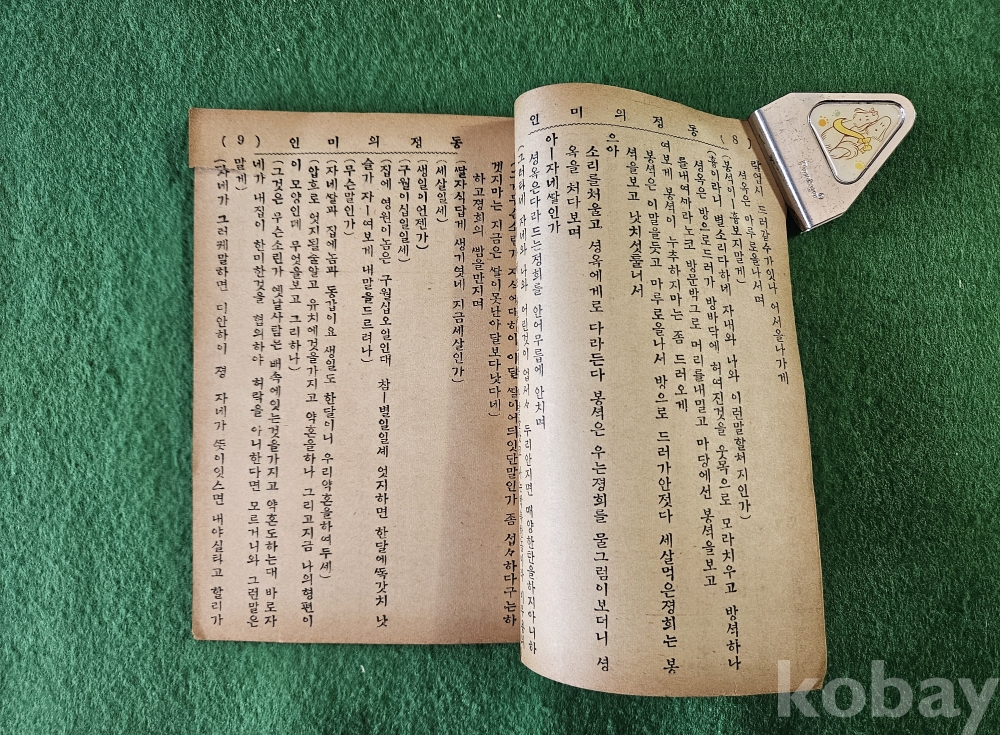 동정의미인 (8)
락언시 드러갈수가잇나 어서을나가게
셩옥은 마루로을나서며
(봉셕이ー흉보지말게)
(흉이라니 별소리다하네 자네와 나와 이런말할쳐지인가)
셩옥은 방으로드러가 방바닥에 허여진것을 웃목으로 모라치우고 방셕하나
를내여까라노코 방문박그로 머리를내밀고 마당에선 봉셕을보고
여보게 봉셕이 누추하지마는 좀 드러오게
봉셕은 이말을듯고 마루로올나서 방으로 드러가안젓다 세살먹은졍희는 봉
셕을보고 낫치섯툴너서
으아
소리를처울고 셩옥에게로 다라든다 봉셕은 우는졍희를 물그럼이보더니 셩
옥을 처다보며
아ー자네쌀인가
셩옥은다라드는졍희를 안어무릅헤 안치며
(그러라네 자네와 나와 어린것이 업서서 두리안지면 매양한탄을하지아니하
동정의미인 (9)
겟지마는 지금은 쌀이못난아달보다낫다네)
하고졍희의 쌈을만지며
(쌀자식답게 생기엿네 지금세살인가)
(세살일세)
(생일이언젠가)
(구월이십일일세)
(집에 영원이놈은 구월십오일인대 참ー별일일셰 엇지하면 한달에쪽갓치 낫
슬가 자ー여보게 내말을드르려나)
(무슨말인가)
(자네쌀과 집에놈과 동갑이요 생일도 한달이니 우리약혼을하여두세)
(압흐로 엇지될줄알고 유치에것을가지고 약혼을하나 그리고지금 나의형편이
이 모양인데 무엇을보고 그리하나)
(그것은 무슨소린가 옛날사람은 배속에잇는것을가지고 약혼도하는대 바로자
네가 내집이 한미한것을 혐의하야 허락을아니한다면 모르거니와 그런말은
말게)
(자네가 그러케말하면 미안하이 졍 자네가 쯧이잇스면 내야실타고 할리가
kobay